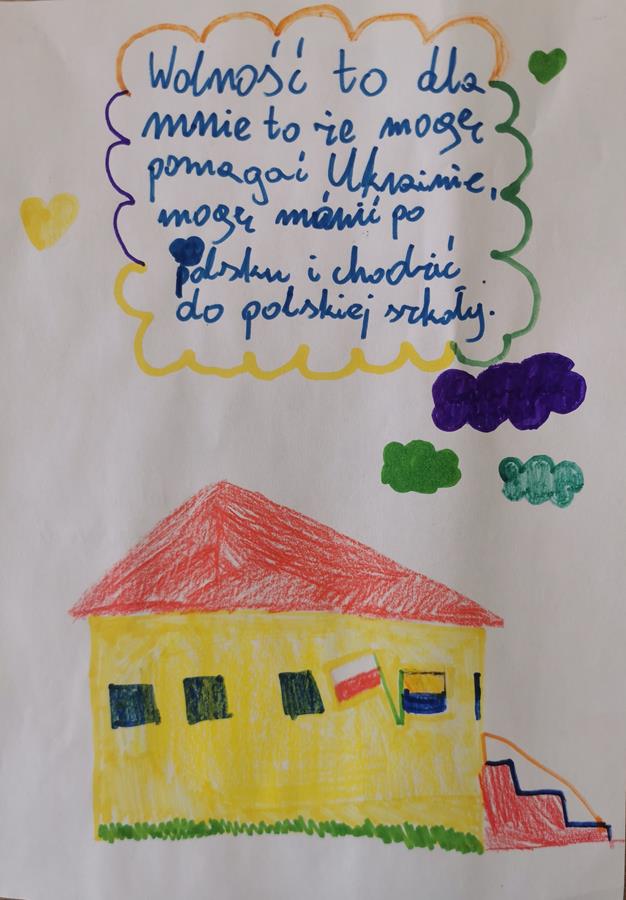 Wolność to dla
mnie to że mogę
pomagać Ukrainie,
mogę mówić po
polsku i chodzić
do polskiej szkoły.